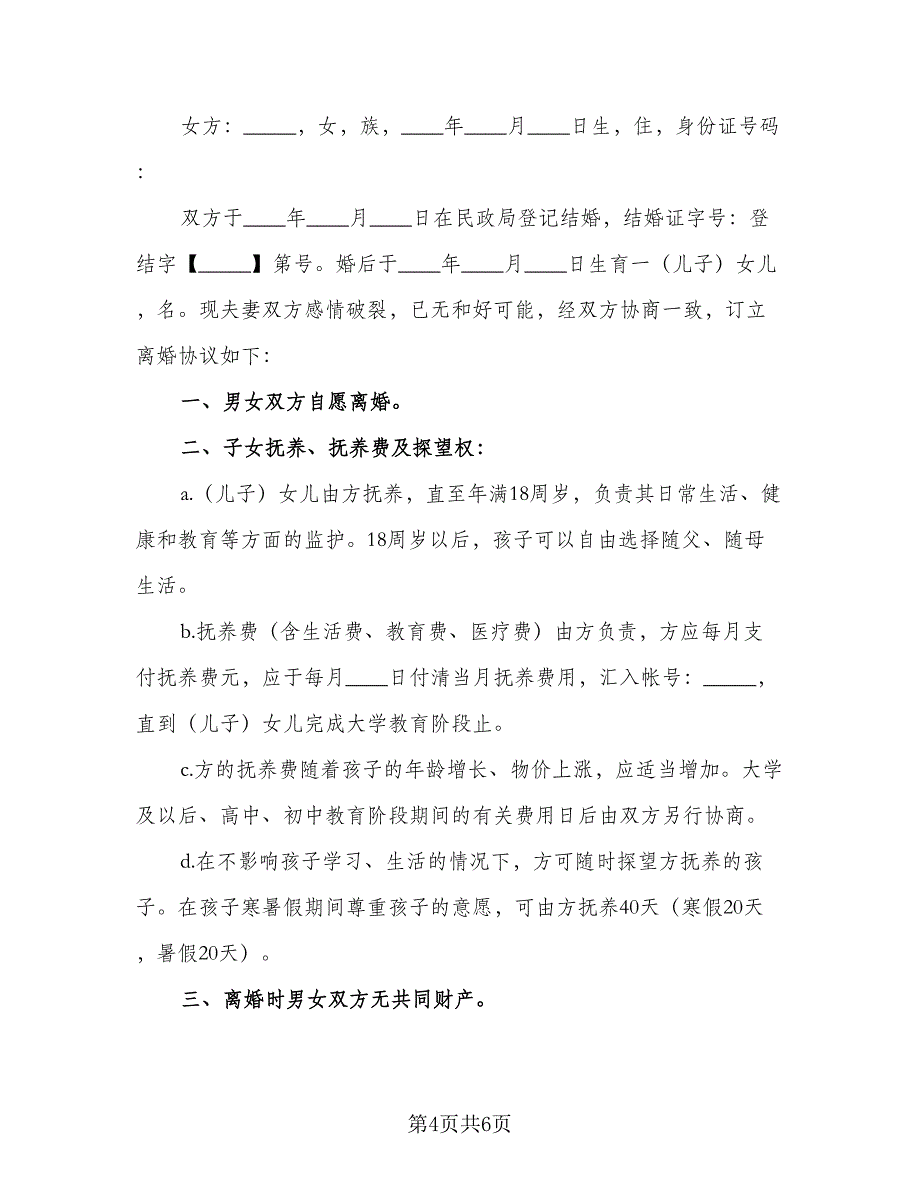 女方：_____，女，族，____年____月____日生，住，身份证号码
：
双方于____年____月____日在民政局登记结婚，结婚证字号：登
结字【_____】第号。婚后于____年____月____日生育一（儿子）女儿
，名。现夫妻双方感情破裂，已无和好可能，经双方协商一致，订立
离婚协议如下：
一、男女双方自愿离婚。
二、子女抚养、抚养费及探望权：
a.（儿子）女儿由方抚养，直至年满18周岁，负责其日常生活、健
康和教育等方面的监护。18周岁以后，孩子可以自由选择随父、随母
生活。
b.抚养费（含生活费、教育费、医疗费）由方负责，方应每月支
付抚养费元，应于每月____日付清当月抚养费用，汇入帐号：_____，
直到（儿子）女儿完成大学教育阶段止。
c.方的抚养费随着孩子的年龄增长、物价上涨，应适当增加。大学
及以后、高中、初中教育阶段期间的有关费用日后由双方另行协商。
d.在不影响孩子学习、生活的情况下，方可随时探望方抚养的孩
子。在孩子寒暑假期间尊重孩子的意愿，可由方抚养40天（寒假20天
，暑假20天）。
三、离婚时男女双方无共同财产。
第4页共6页